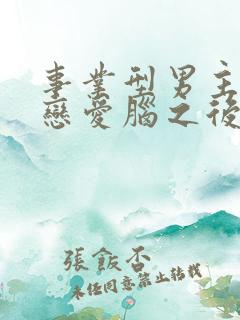 事業型男主
戀愛腦之後
張飯否
未經同意禁止轉載